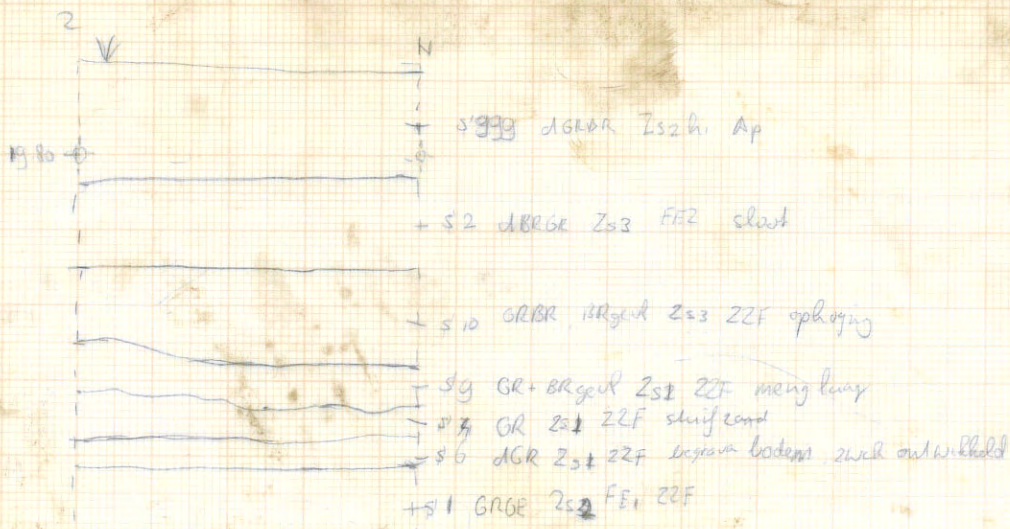 2
N
S 999 dGRBR Zs2h1 Ap
19.80
S 2 dBRGR Zs3 FE2 sloot
S 10 GRBR, BRgevl Zs3 ZZF ophoging
S 9 GR+BRgevl Zs1 ZZF menglaag
GR Zs1 ZZF stuifzand
S 6 dGR Zs1 ZZF begraven bodem zwak ontwikkeld
S 1 GRGE Zs2 FE1 ZZF